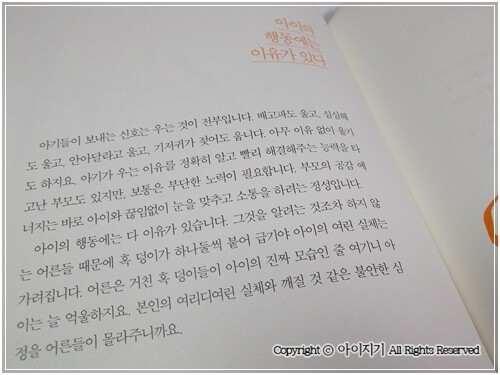 아이의
행동에는
이유가 있다
아기들이 보내는 신호는 우는 것이 전부입니다. 배고파도 울고, 심심해
도 울고, 안아달라고 울고, 기저귀가 젖어도 웁니다. 아무 이유 없이 울기
도 하지요. 아기가 우는 이유를 정확히 알고 빨리 해결해주는 능력을 타
고난 부모도 있지만, 보통은 부단한 노력이 필요합니다. 부모의 공감 에
너지는 바로 아이와 끊임없이 눈을 맞추고 소통을 하려는 정성입니다.
아이의 행동에는 다 이유가 있습니다. 그것을 알려는 것조차 하지 않
는 어른들 때문에 혹 덩이가 하나둘씩 붙어 급기야 아이의 여린 실체는
가려집니다. 어른은 거친 혹 덩이들이 아이의 진짜 모습인 줄 여기니 아
이는 늘 억울하지요. 본인의 여리디여린 실체와 깨질 것 같은 불안한 심
정을 어른들이 몰라주니까요.
Copyright ⓒ 아이지기 All Rights Reserved